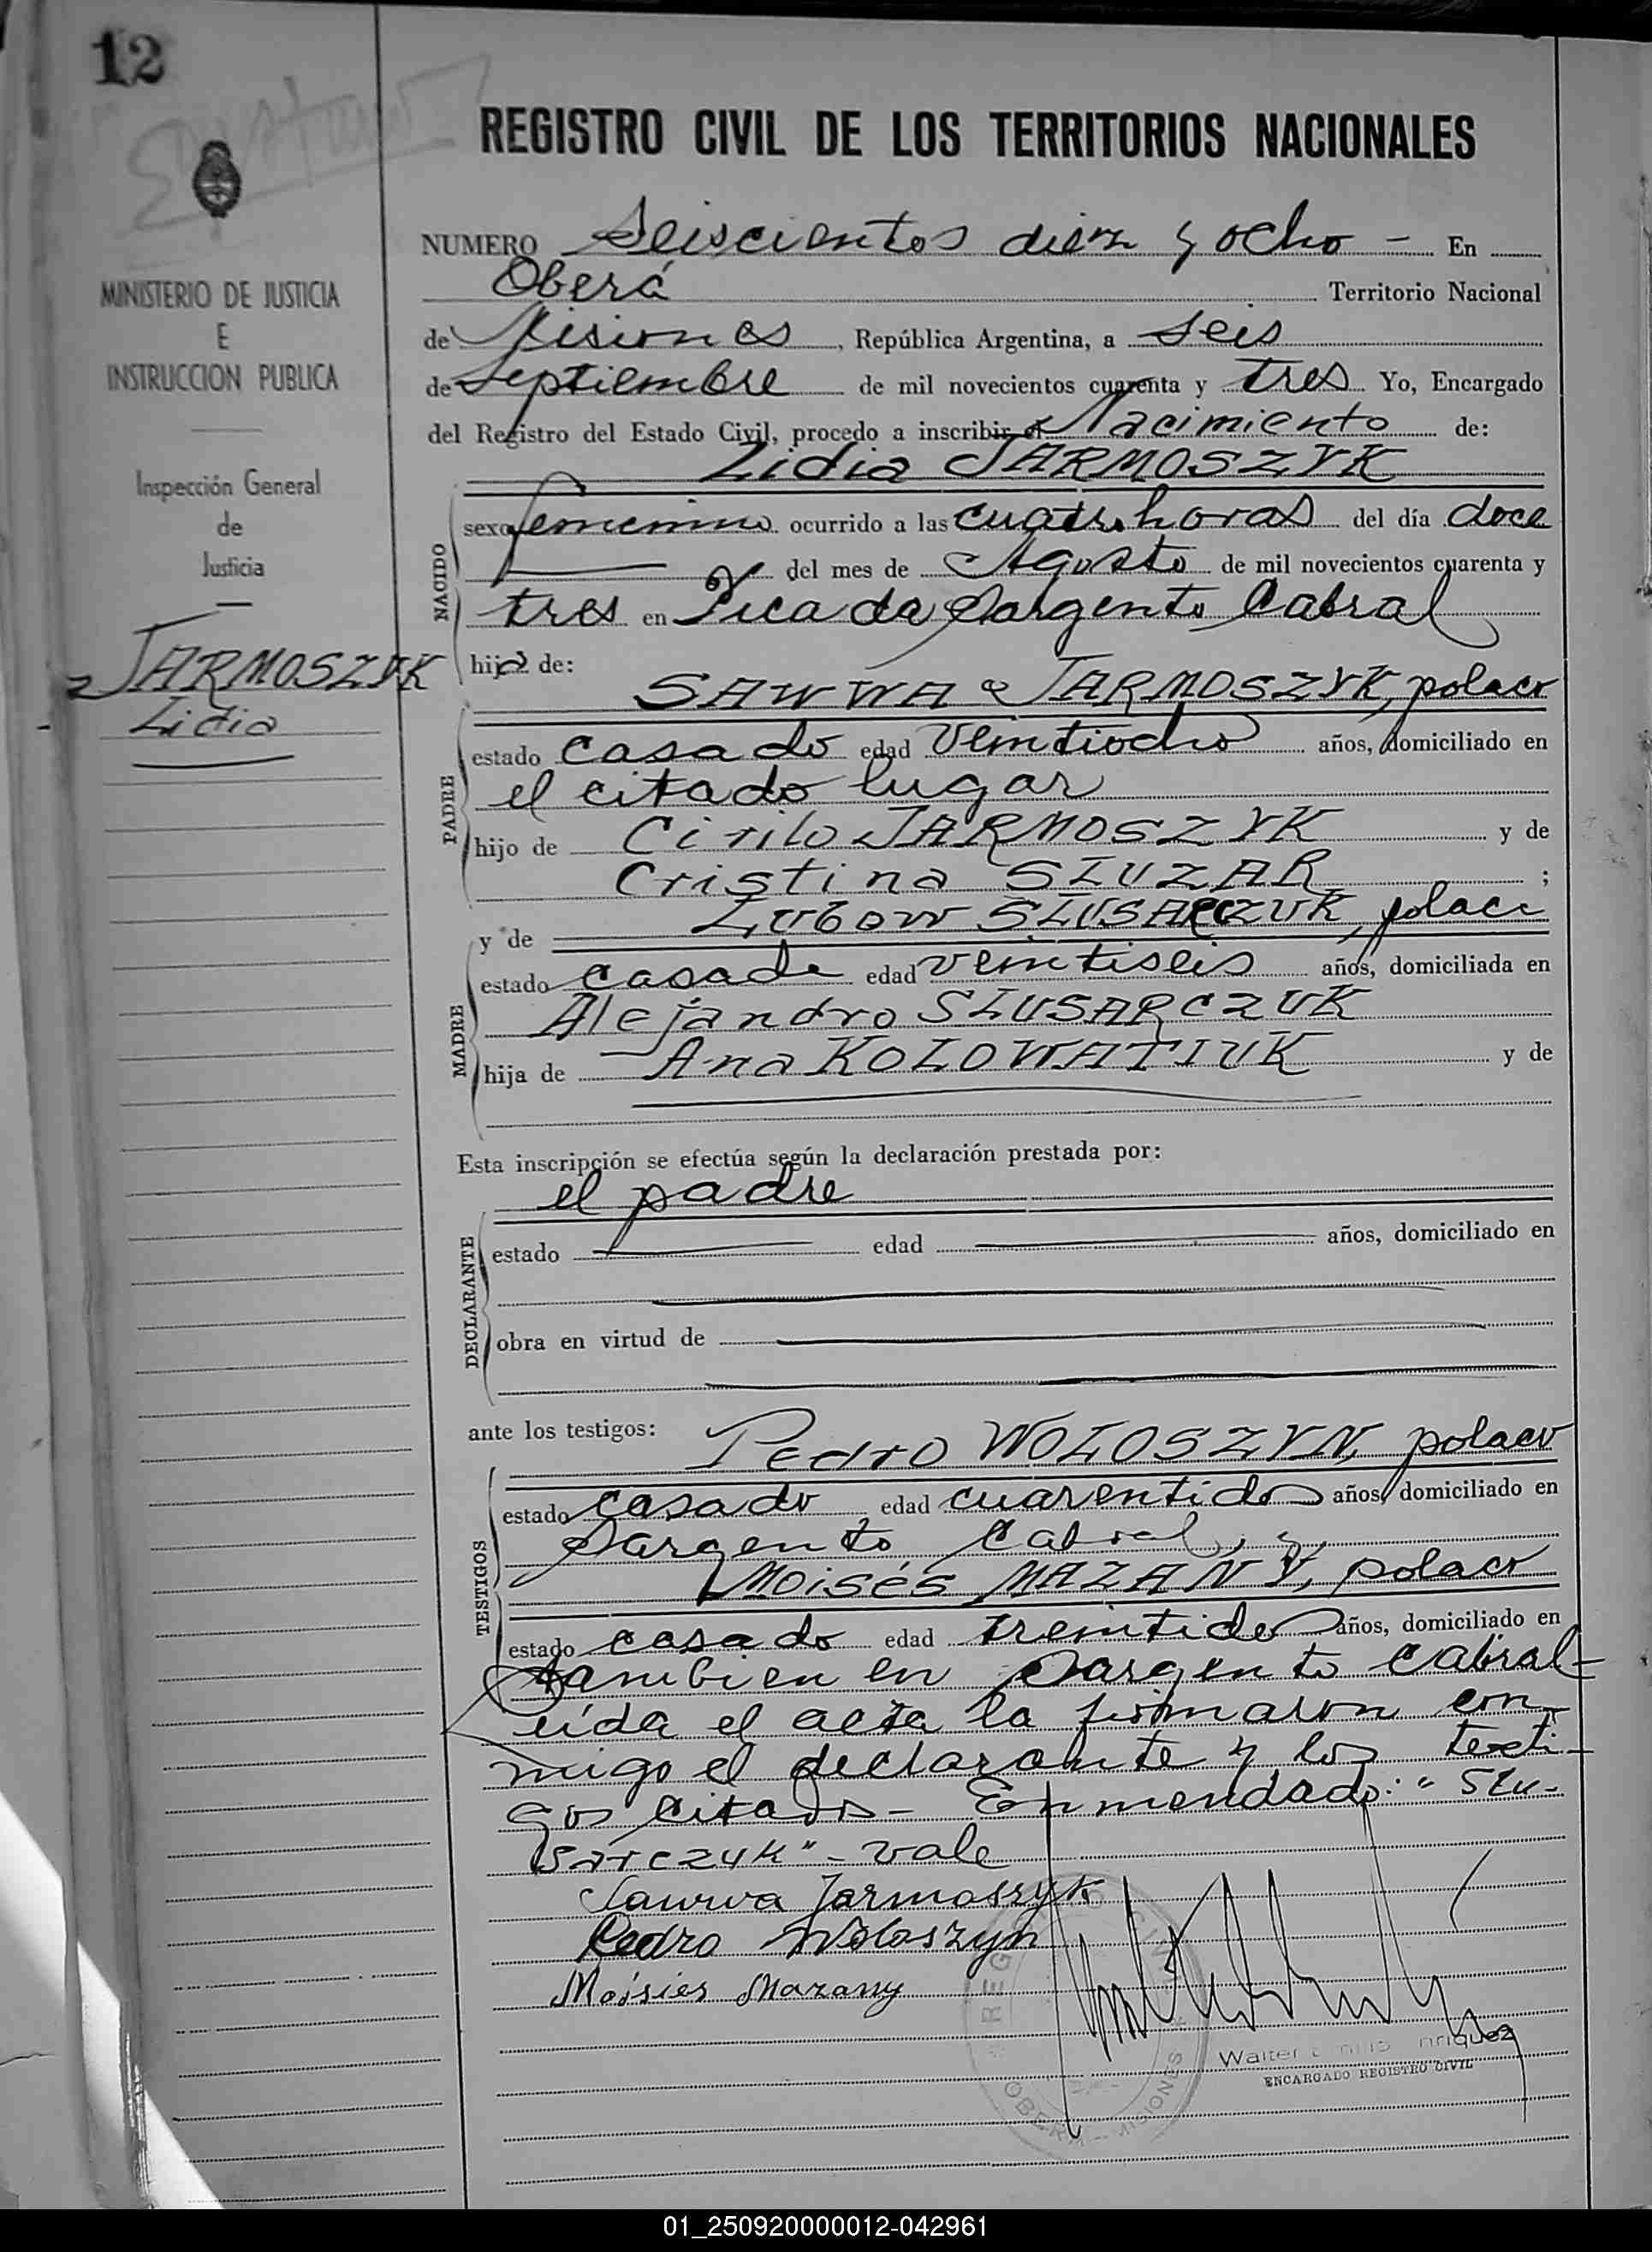 12
REGISTRO CIVIL DE LOS TERRITORIOS NACIONALES
MINISTERIO DE JUSTICIA
E
INSTRUCCION PUBLICA
Inspección General
de
Justicia
JARMOSZYK
Lidia
NUMERO Seiscientos diez y ocho - En
Oberá Territorio Nacional
de Misiones, República Argentina, a seis
de Septiembre de mil novecientos cuarenta y tres Yo, Encargado
del Registro del Estado Civil, procedo a inscribir el Nacimiento de:
Lidia JARMOSZYK
NACIDO
sexo femenino ocurrido a las cuatro horas del día doce
del mes de Agosto de mil novecientos cuarenta y
tres en Picada Sargento Cabral
hija de:
PADRE
SAWWA JARMOSZYK, polaco
estado casado edad veintiocho años, domiciliado en
el citado lugar
hijo de Cirilo JARMOSZYK y de
Cristina SLUZAR ;
MADRE
y de Lubow SLUSARCZUK, polaca
estado casada edad veintiseis años, domiciliada en
Alejandro SLUSARCZUK
hija de Ana KOLOWATIUK y de
Esta inscripción se efectúa según la declaración prestada por:
el padre
DECLARANTE
estado edad años, domiciliado en
obra en virtud de
ante los testigos: Pedro WOLOSZYN, polaco
TESTIGOS
estado casado edad cuarentidos años, domiciliado en
Sargento Cabral, y
Moisés MAZANY, polaco
estado casado edad treintidos años, domiciliado en
tambien en Sargento Cabral-
Leída el acta la firmaron con
migo el declarante y los testi-
gos citados- Enmendado: "Slu-
sarczuk" - vale
Sawwa Jarmoszyk
Pedro Woloszyn
Moisies Mazany
REGISTRO CIVIL
OBERÁ - MISIONES
Walter
ENCARGADO REGISTRO CIVIL
01_250920000012-042961